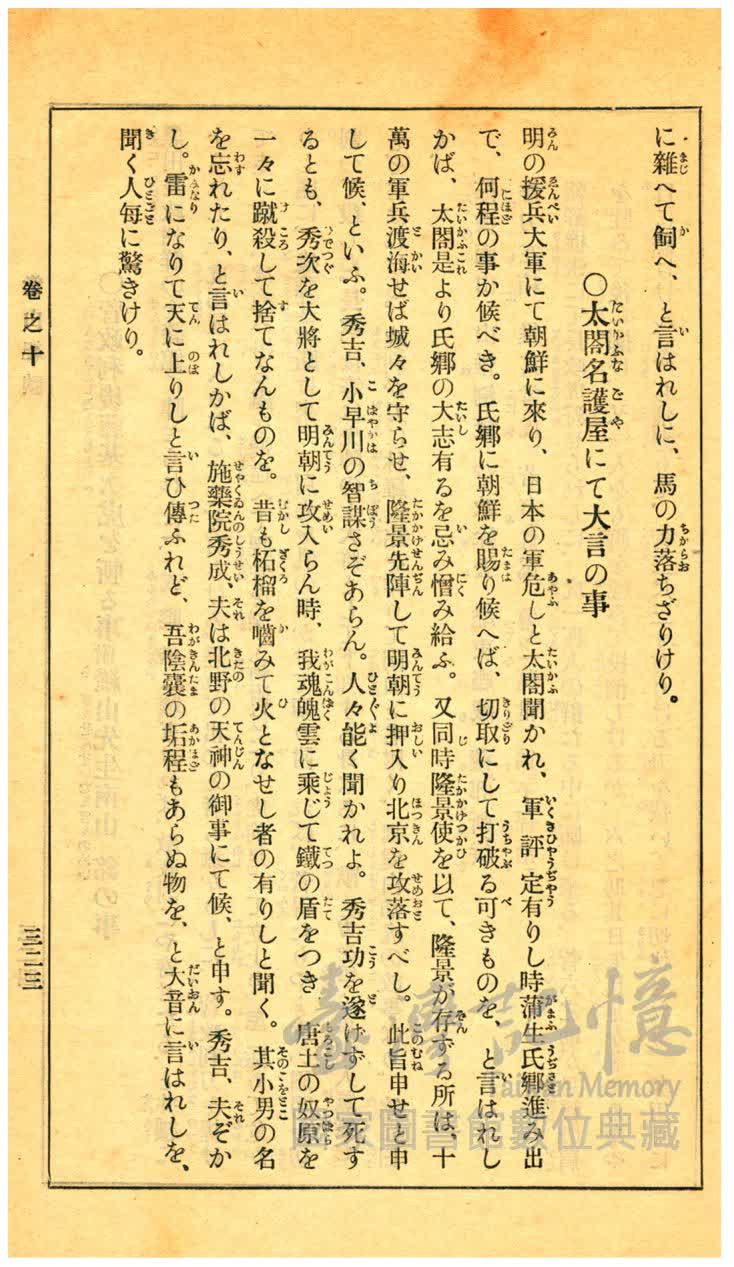 に雜へて飼へ、と言はれしに、馬の力落ちざりけり。
〇太閤名護屋にて大言の事
明の援兵大軍にて朝鮮に來り、日本の軍危しと太閤聞かれ、軍評定有りし時蒲生氏郷進み出
で、何程の事か候べき。氏郷に朝鮮を賜り候へば、切取にして打破る可きものを、と言はれし
かば、太閤是より氏郷の大志有るを忌み憎み給ふ。又同時隆景使を以て、隆景が存ずる所は、十
萬の軍兵渡海せば城々を守らせ、隆景先陣して明朝に押入り北京を攻落すべし。此旨申せと申
して候、といふ。秀吉、小早川の智謀さぞあらん。人々能く聞かれよ。秀吉功を遂げずして死す
るとも、秀次を大將として明朝に攻入らん時、我魂魄雲に乘じて鐵の盾をつき、唐土の奴原を
一々に蹴殺して捨てなんものを。昔も柘榴を嚙みて火となせし者の有りしと聞く。其小男の名
を忘れたり、と言はれしかば、施藥院秀成、夫は北野の天神の御事にて候、と申す。秀吉、夫ぞか
し。雷になりて天に上りしと言ひ傳ふれど、吾陰囊の垢程もあらぬ物を、と大音に言はれしを、
聞く人每に驚きけり。
卷之十
三二三
臺灣記憶
Taiwan Memory
國家圖書館數位典藏